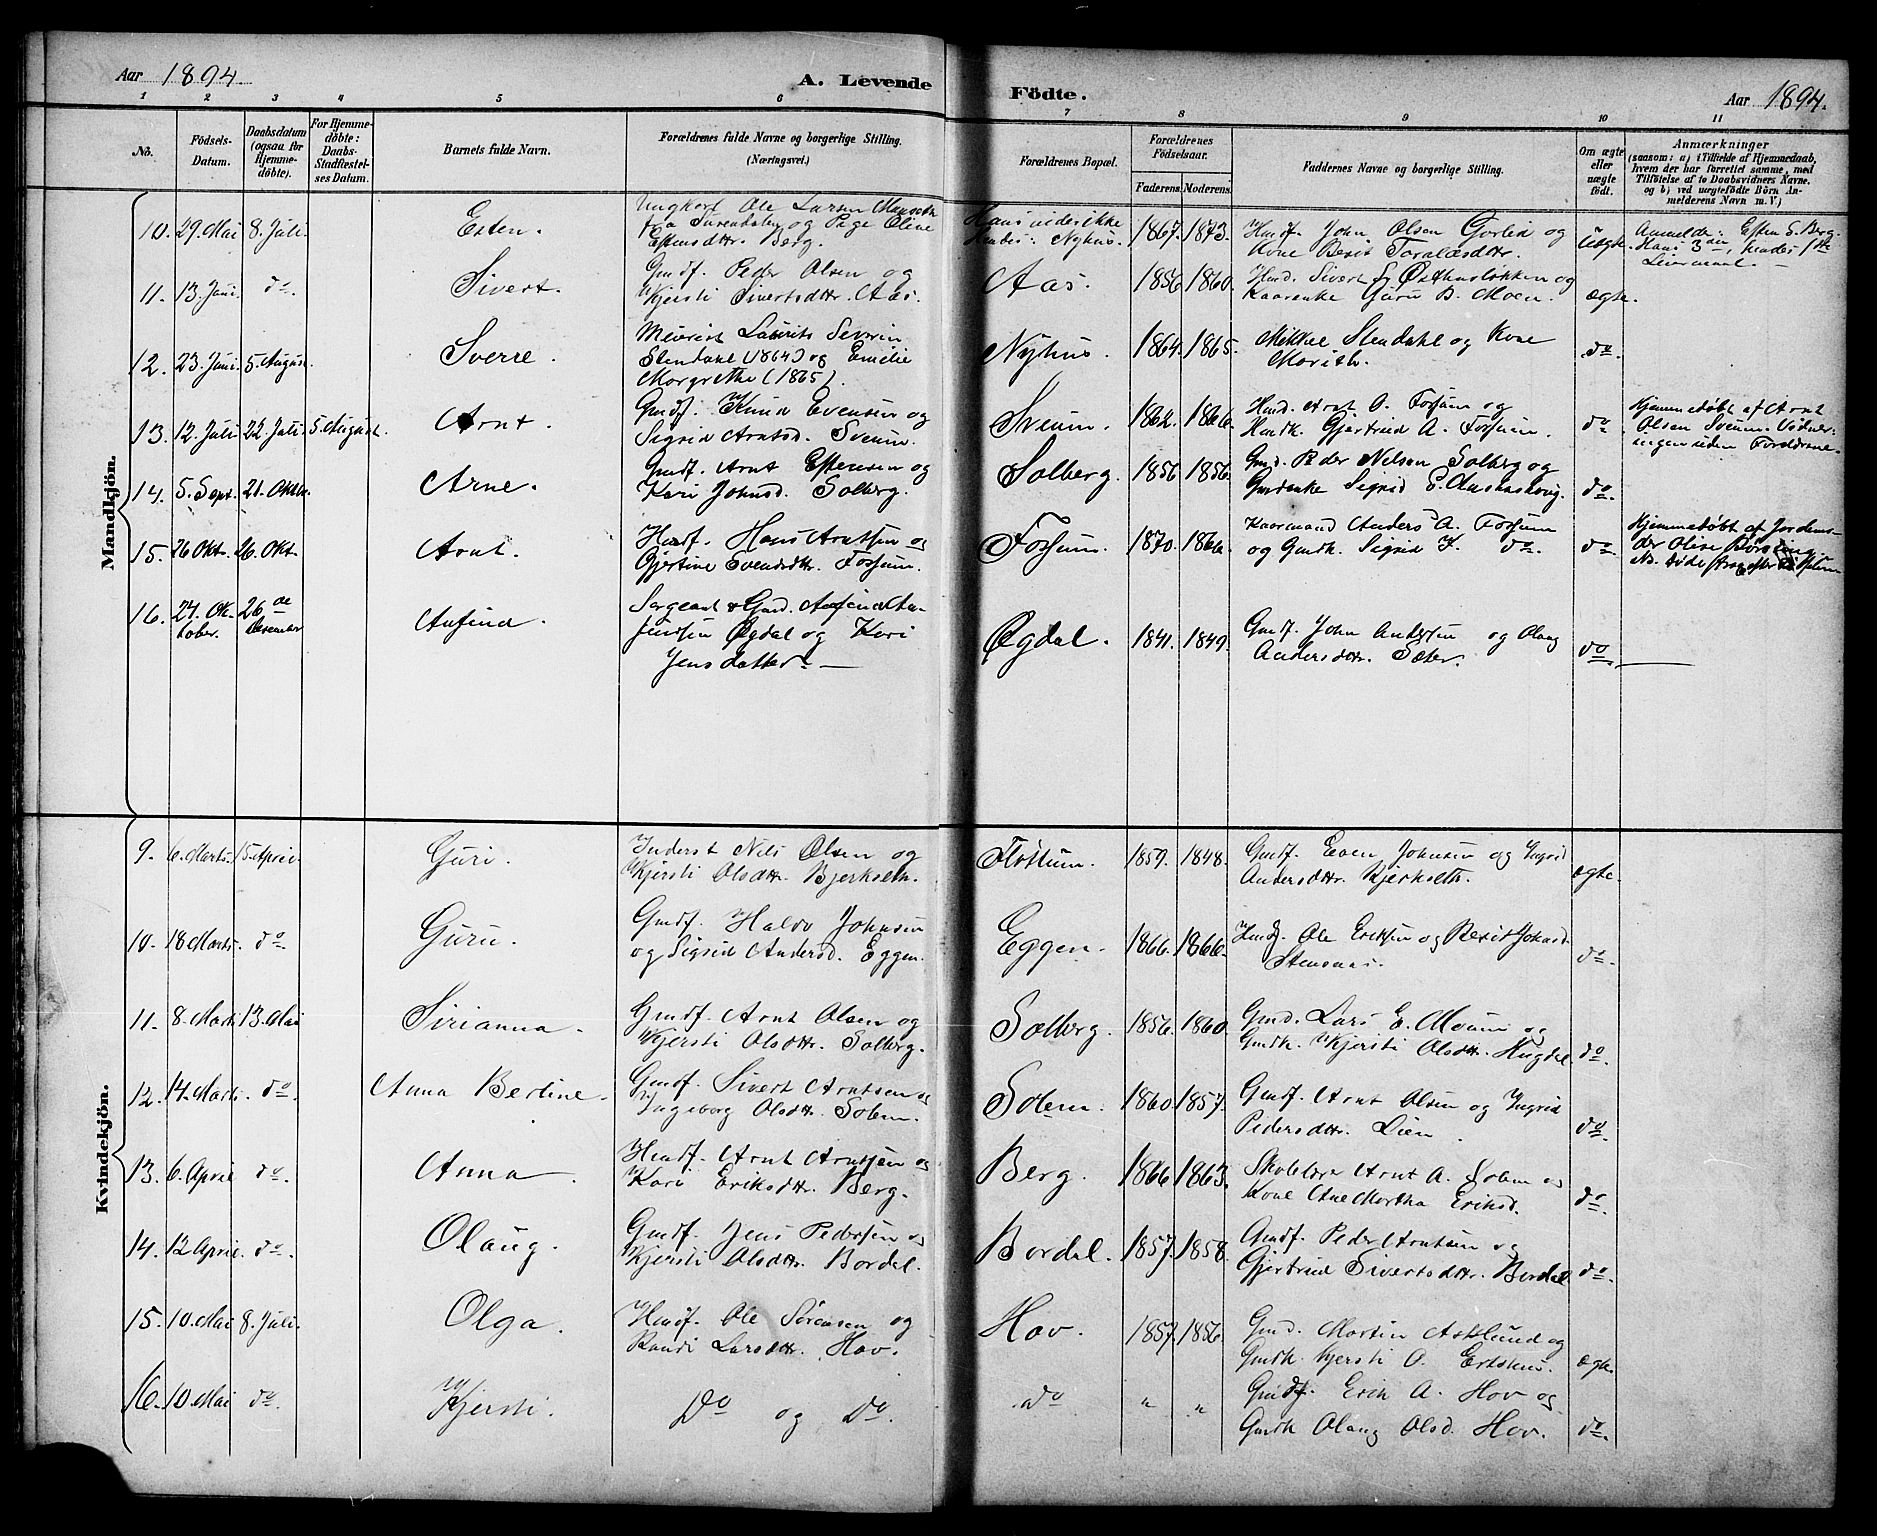 Aar 1894.
A. Levende
Födte.
Aar 1894.
1 2 3 4 5 6 7 8 9 10 11
No.
Födsels-
Datum.
Daabsdatum
(ogsaa for
Hjemme-
döbte).
For Hjemme-
döbte:
Daabs-
Stadfæstel-
ses Datum.
Barnets fulde Navn.
Forældrenes fulde Navne og borgerlige Stilling.
(Næringsvei.)
Forældrenes Bopæl.
Forældrenes
Födselsaar.
Faderens. Moderens.
Faddernes Navne og borgerlige Stilling.
Om ægte
eller
uægte
födt.
Anmærkninger
(saasom: a) i Tilfælde af Hjemmedaab,
hvem der har forrettet samme, med
Tilföielse af to Daabsvidners Navne.
og b) ved uægtefödte Börn An-
melderens Navn m. V.)
Mandkjön.
10. 29. Mai 8. Juli. Esten.
Ungkarl Ole Larsen
fra Surendalen og Pige Oline
Estensdttr. Berg.
Hans vides ikke
Hendes: Nyhus. 1867. 1873.
Husf. John Olsen Gorlid og
Kone Berit Toralsdttr.
Uægte.
Anmelde: Esten E. Berg.
Hans 3die, hendes 1ste
Leiermaal.
11. 13. Juni. do. Sivert.
Gmdf. Peder Olsen og
Kjersti Sivertsdttr. Aas.
Aas. 1856 1860.
Husf. Sivert Östhusløkken og
Guru B. Moen.
ægte.
12. 23. Juni. 5. August. Sverre.
Meierist Laurits Severin
Stendahl (1864) og Emilie
Margrethe (1865).
Nyhus. 1864. 1865.
Mikkel Stendahl og Kone
Marith.
do.
13. 12. Juli 22. Juli. 5. August. Arnt.
Gmdf. Knud Evensen og
Sigrid Arntsd. Sveum.
Sveum. 1862. 1866.
Husd. Arnt O. Fossum og
Husdk. Gjertrud A. Fossum.
do
Hjemmedøbt af Arnt
Olsen Sveum. Vidner:
ingen uden Forældrene.
14. 5. Sept. 21. Oktbr. Arne.
Gmdf. Arnt Estensen og
Kari Johnsd. Solberg.
Solberg. 1856 1856.
Gmd. Peder Nilsen Solberg og
Gmdenke Sigrid E.
do.
15. 26 Okt. 26. Okt. Arnt.
Husf. Hans Arntsen og
Gjertine Evensdttr. Fossum.
Fossum. 1870. 1866.
Kaarmand Anders A. Fossum
og Gmdk. Sigrid K. do.
do.
Hjemmedøbt af Jordemo-
der Olise
16. 24. Ok-
tober. 26de
December Anfind.
Sergeant & Gmd. Anfind An-
Øgdal og Kari
Jensdatter.
Øgdal. 1841. 1849.
Gmdf. John Andersen og Olaug
Andersdttr. Sæter.
do.
Kvindekjön.
9. 6. Marts. 15. April. Guri.
Inderst Nils Olsen og
Kjersti Olsdttr. Bjerkseth.
Flöttum. 1859. 1848.
Gmdf. Even Johnsen og Ingrid
Andersdttr. Bjerkseth.
ægte.
10. 18 Marts. do. Guru.
Gmdf. Haldo Johnsen
og Sigrid Andersd. Eggen.
Eggen. 1866. 1866.
Husf. Ole Eriksen og Berit Johnsd.
Stensnæs.
do.
11. 8. Marts. 13. Mai Sirianna.
Gmdf. Arnt Olsen og
Kjersti Olsdttr. Solberg.
Solberg. 1856. 1860.
Gmd. Lars E. Moum og
Gmdk. Kjersti Olsdttr. Hugdal.
do.
12. 14. Marts. do. Anna Bertine.
Gmdf. Sivert Arntsen og
Ingeborg Olsdttr. Solem.
Solem. 1860. 1857.
Gmdf. Arnt Olsen og Ingrid
Pedersdttr. Lien.
do.
13. 6. April do. Anna.
Husf. Arnt Arntsen og
Kari Eriksdttr. Berg.
Berg. 1866 1863.
Skolelærer Arnt A. Solem og
Kone Ane Martha Eriksd.
do.
14. 12 April. do. Olaug.
Gmdf. Jens Pedersen og
Kjersti Olsdttr. Bordal.
Bordal. 1857. 1858.
Gmdf. Peder Arntsen og
Gjertrud Sivertsdttr. Bordal.
do.
15. 10. Mai 8. Juli. Olga.
Husf. Ole Sörensen og
Randi Larsdttr. Hov.
Hov. 1857. 1856.
Gmd. Martin Asklund og
Gmdk. Kjersti A. Ertshus.
ægte.
16. 10. Mai do. Kjersti.
Do og Do.
do " "
Gmdf. Erik A. Hov og
Gmdk Olaug Olsd. Hov.
do.